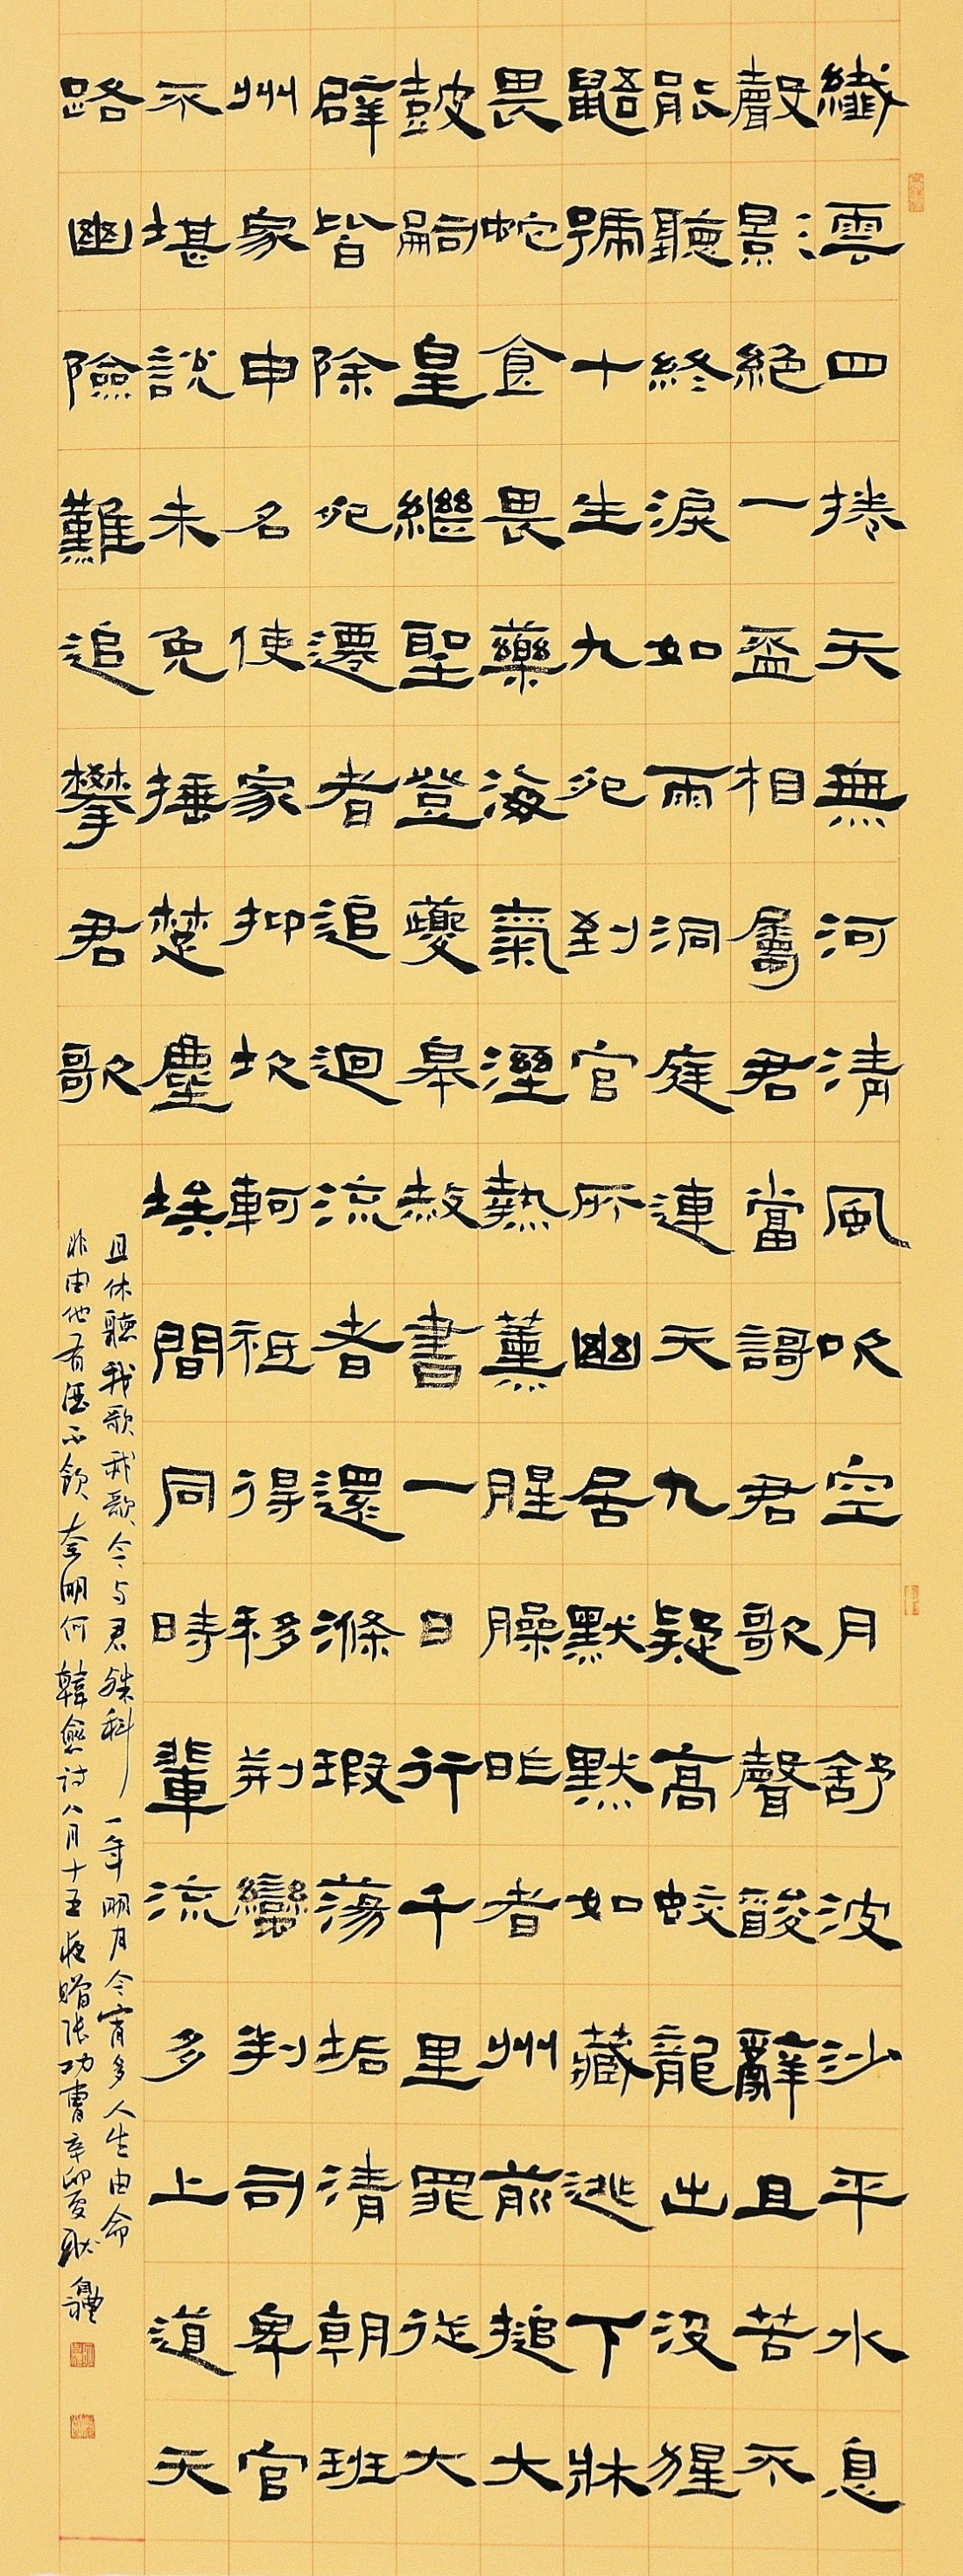 纖雲四捲天無河清風吹空月舒波沙平水息
聲影絕一盃相屬君當謌君歌聲酸辭且苦不
能聽終淚如雨洞庭連天九疑高蛟龍出沒猩
鼯號十生九死到官所幽居默默如藏逃下牀
畏蛇食畏藥海氣溼熱薰腥臊昨者州前搥大
鼓嗣皇繼聖登夔皋赦書一日行千里罪從大
辟皆除死遷者追迴流者還滌瑕蕩垢清朝班
州家申名使家抑坎軻祗得移荊蠻判司卑官
不堪說未免捶楚塵埃間同時輩流多上道天
路幽險難追攀君歌
且休聽我歌我歌今与君殊科一年明月今宵多人生由命
非由他有酒不飲奈明何韓愈詩八月十五夜贈張功曹辛卯夏耿